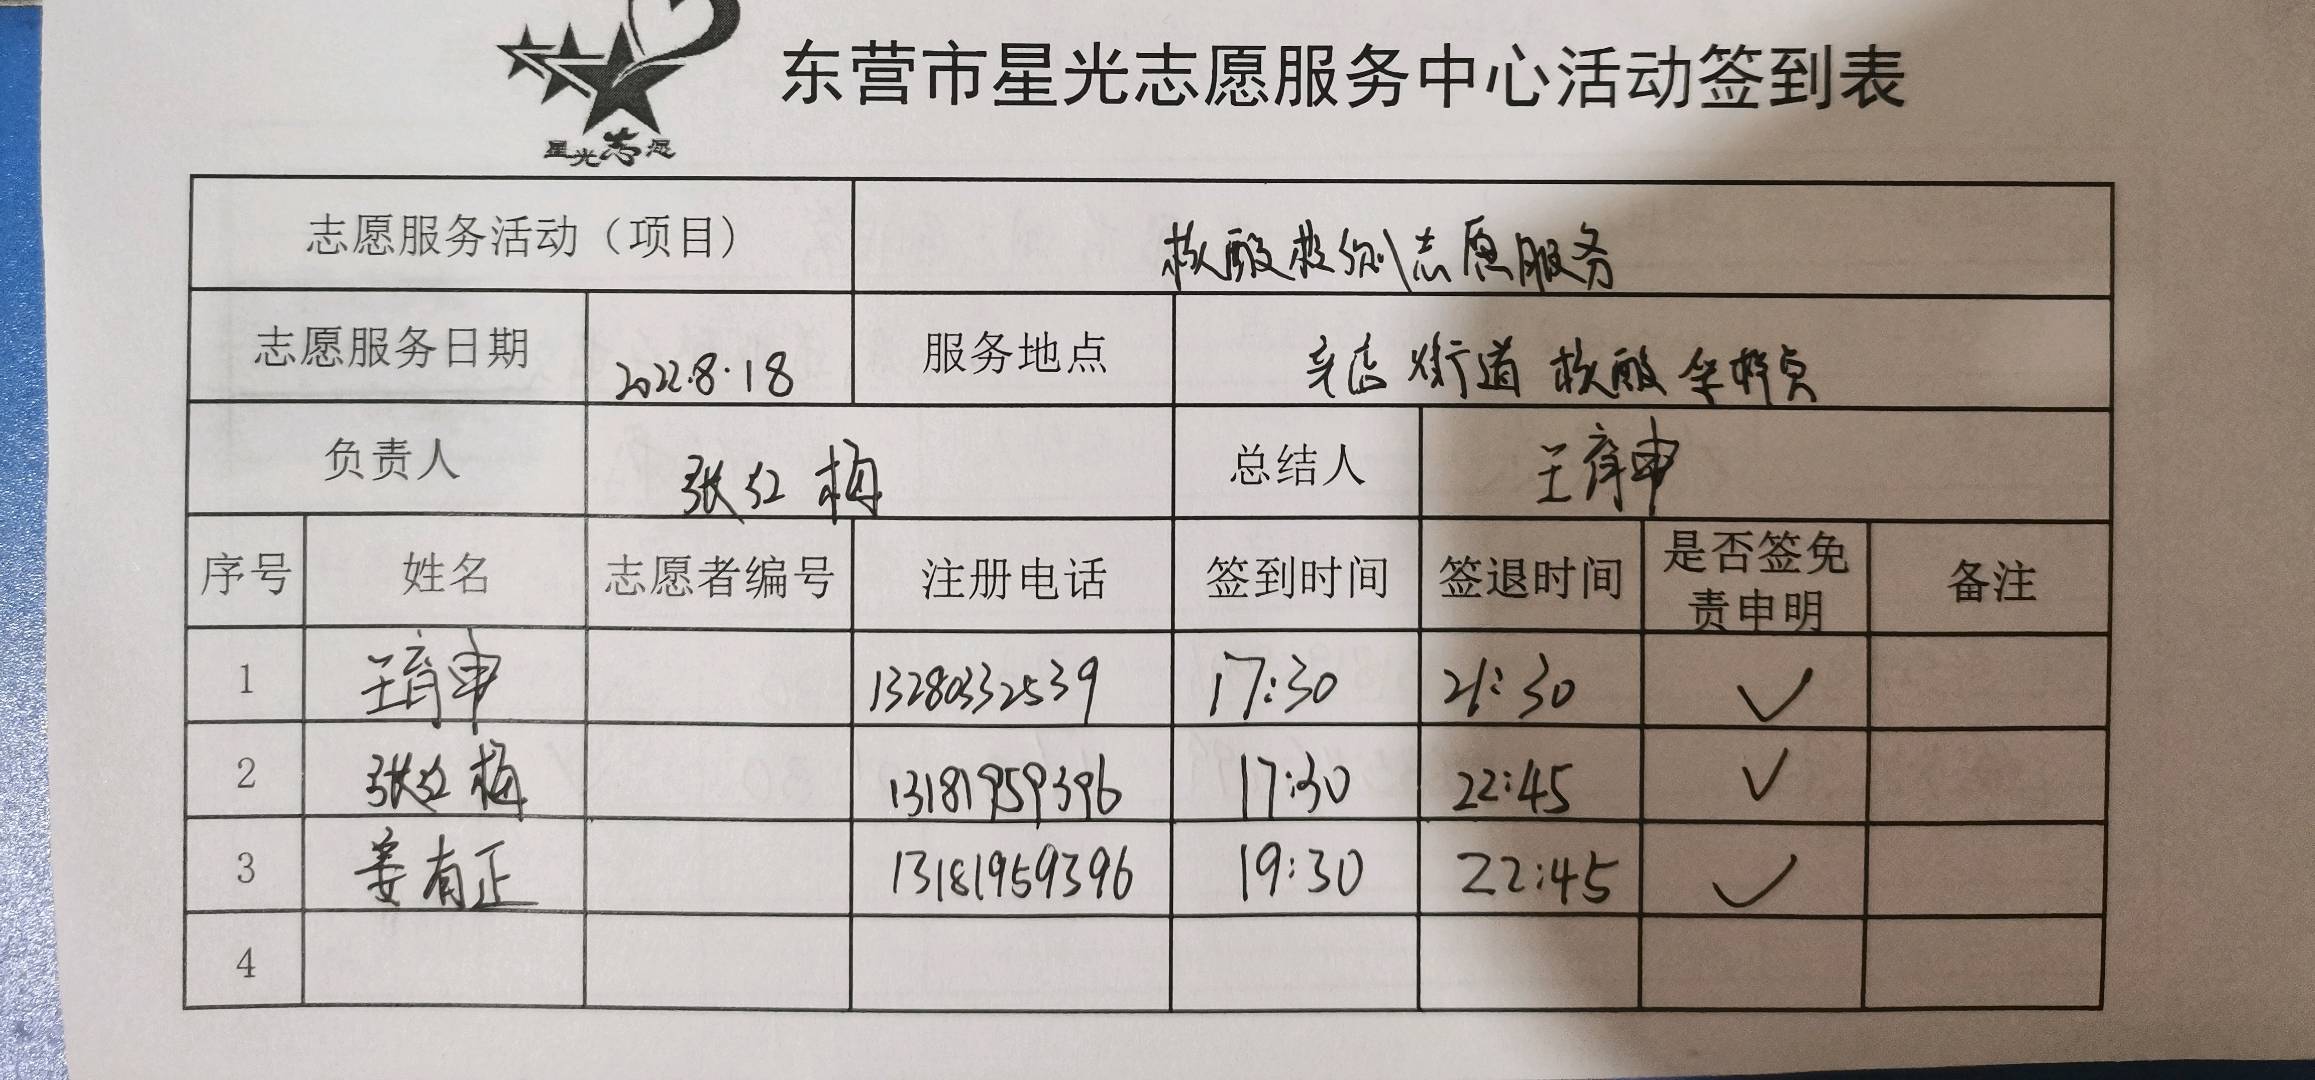 东营市星光志愿服务中心活动签到表
星光志愿
志愿服务活动（项目） 核酸检测志愿服务
志愿服务日期 2022.8.18 服务地点 辛店街道核酸采样点
负责人 张红梅 总结人 王育申
序号 姓名 志愿者编号 注册电话 签到时间 签退时间 是否签免责申明 备注
1 王育申 13280332539 17:30 21:30 ✓
2 张红梅 13181959396 17:30 22:45 ✓
3 姜有正 13181959396 19:30 22:45 ✓
4